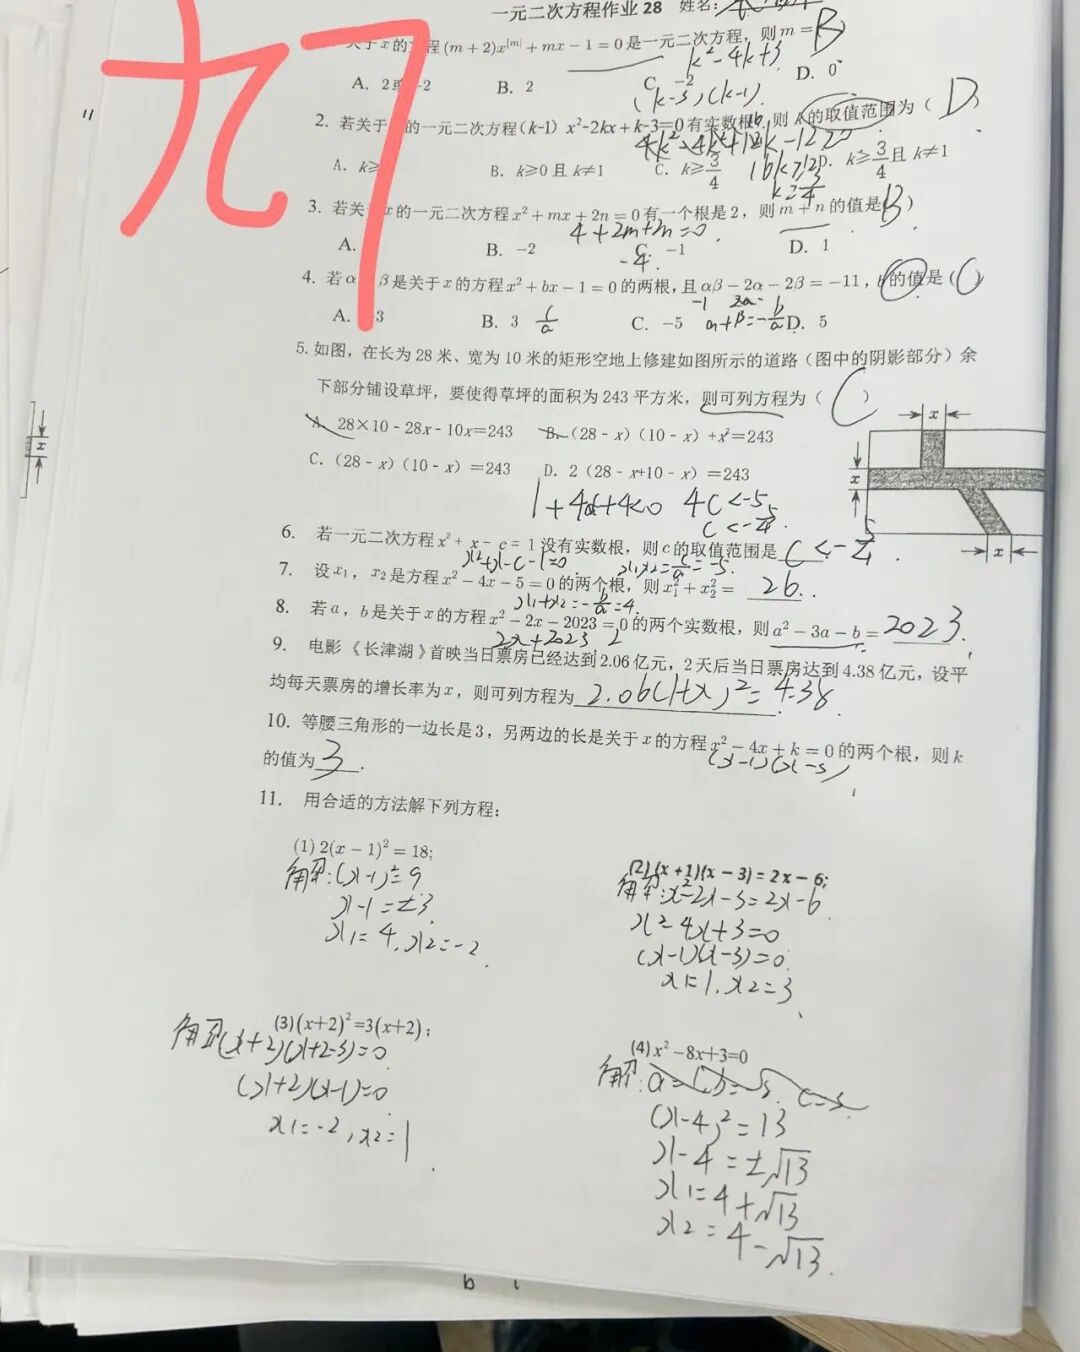 一元二次方程作业28 姓名:
关于x的方程(m+2)x^|m|+mx-1=0是一元二次方程，则m= B
k²-4k+3
A. 2或-2 B. 2 C. -2 D. 0
(k-3)(k-1)
2. 若关于 的一元二次方程(k-1) x²-2kx+k-3=0有实数根，则 k的取值范围为（ D ）
16k≥12
A. k≥ B. k≥0且k≠1 C. k≥3/4 D. k≥3/4且k≠1
k≥3/4
3. 若关 x的一元二次方程x²+mx+2n=0有一个根是2，则m+n的值是( B )
4+2m+2n=0
A. B. -2 C. -1 D. 1
-4
4. 若α β是关于x的方程x²+bx-1=0的两根,且αβ-2α-2β=-11，b的值是( C )
-1
A. 3 B. 3 c/a C. -5 α+β=-b/a D. 5
5.如图，在长为28米、宽为10米的矩形空地上修建如图所示的道路（图中的阴影部分）余
下部分铺设草坪，要使得草坪的面积为243平方米，则可列方程为（ C ）
A. 28×10-28x-10x=243 B. (28-x)(10-x)+x²=243
C. (28-x)(10-x)=243 D. 2(28-x+10-x)=243
x
x
x
1+4c+4<0 4c<-5
c<-5/4.
6. 若一元二次方程x²+x-c=1没有实数根，则c的取值范围是 c<-5/4.
x²+x-c-1=0 x1x2=c/a=-5.
7. 设x₁，x₂是方程x²-4x-5=0的两个根，则x₁²+x₂²= 26.
x1+x2=-b/a=4.
8. 若a，b是关于x的方程x²-2x-2023=0的两个实数根，则a²-3a-b= 2023.
2x+2023 2
9. 电影《长津湖》首映当日票房已经达到2.06亿元，2天后当日票房达到4.38亿元，设平
均每天票房的增长率为x，则可列方程为 2.06(1+x)²=4.38.
10. 等腰三角形的一边长是3，另两边的长是关于x的方程x²-4x+k=0的两个根，则k
(x-1)(x-3)
的值为 3 .
11. 用合适的方法解下列方程：
(1)2(x-1)²=18;
解:(x-1)²=9
x-1=±3
x1=4,x2=-2.
(2)(x+1)(x-3)=2x-6;
解:x²-2x-3=2x-6
x²-4x+3=0
(x-1)(x-3)=0.
x1=1.x2=3.
(3)(x+2)²=3(x+2);
解(x+2)(x+2-3)=0
(x+2)(x-1)=0
x1=-2,x2=1.
(4)x²-8x+3=0
解:
(x-4)²=13
x-4=±√13
x1=4+√13
x2=4-√13.
x